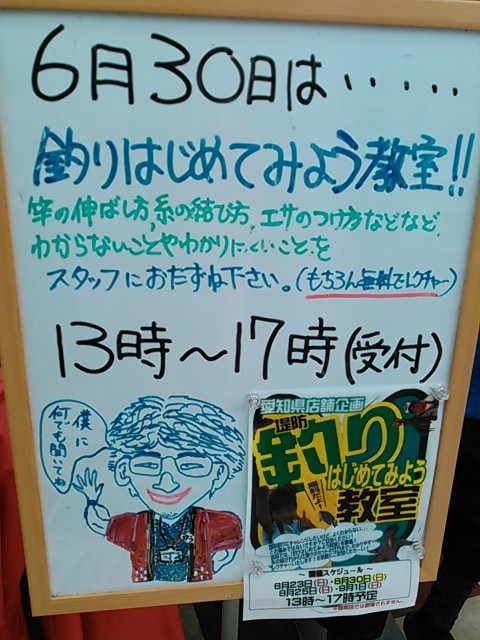 6月30日は・・・・・
釣りはじめてみよう教室!!
竿の伸ばし方,糸の結び方,エサのつけ方などなど
わからないことやわかりにくいことを
スタッフにおたずね下さい。(もちろん無料でレクチャー)
13時～17時(受付)
僕に
何でも聞いてね
愛知県店舗企画
堤防
釣り
はじめてみよう
教室
無料だよ!
～ 開催スケジュール ～
6月23日(日)・6月30日(日)
8月25日(日)・9月1日(日)
13時～17時予定